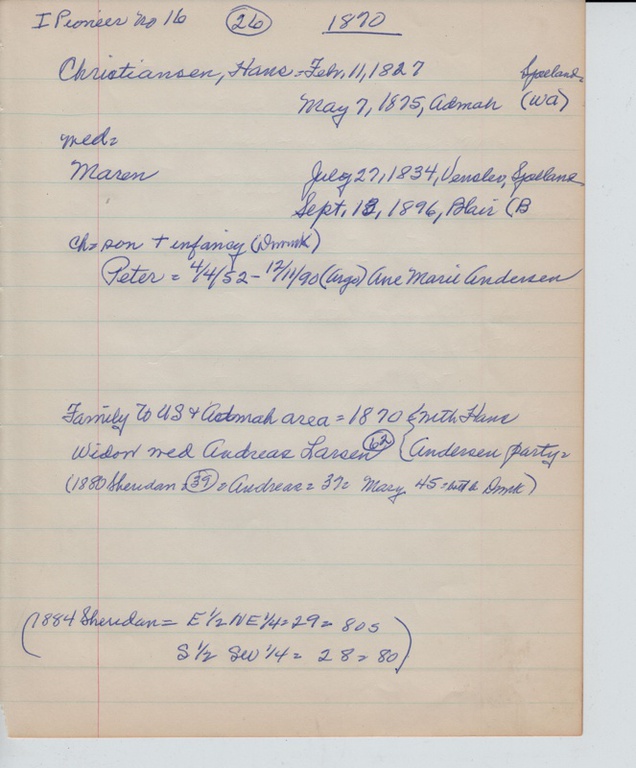 I Pioneer No 16 (26) 1870
Christiansen, Hans = Feb. 11, 1827 Sjaeland =
May 7, 1875, Admah (WA)
med =
Maren July 27, 1834, Venslev, Sjaelland
Sept. 13, 1896, Blair (B
ch = son + infancy (Dnmk)
Peter = 4/4/52 - 12/11/90 (Argo) Ane Marie Andersen
Family to US & Admah area = 1870 { with Hans
Widow med Andreas Larsen (62) { Andersen party =
(1880 Sheridan = (39) = Andreas = 37 = Mary 45 = both b Dnmk)
(1884 Sheridan = E 1/2 NE 1/4 = 29 = 80s
S 1/2 SW 1/4 = 28 = 80)